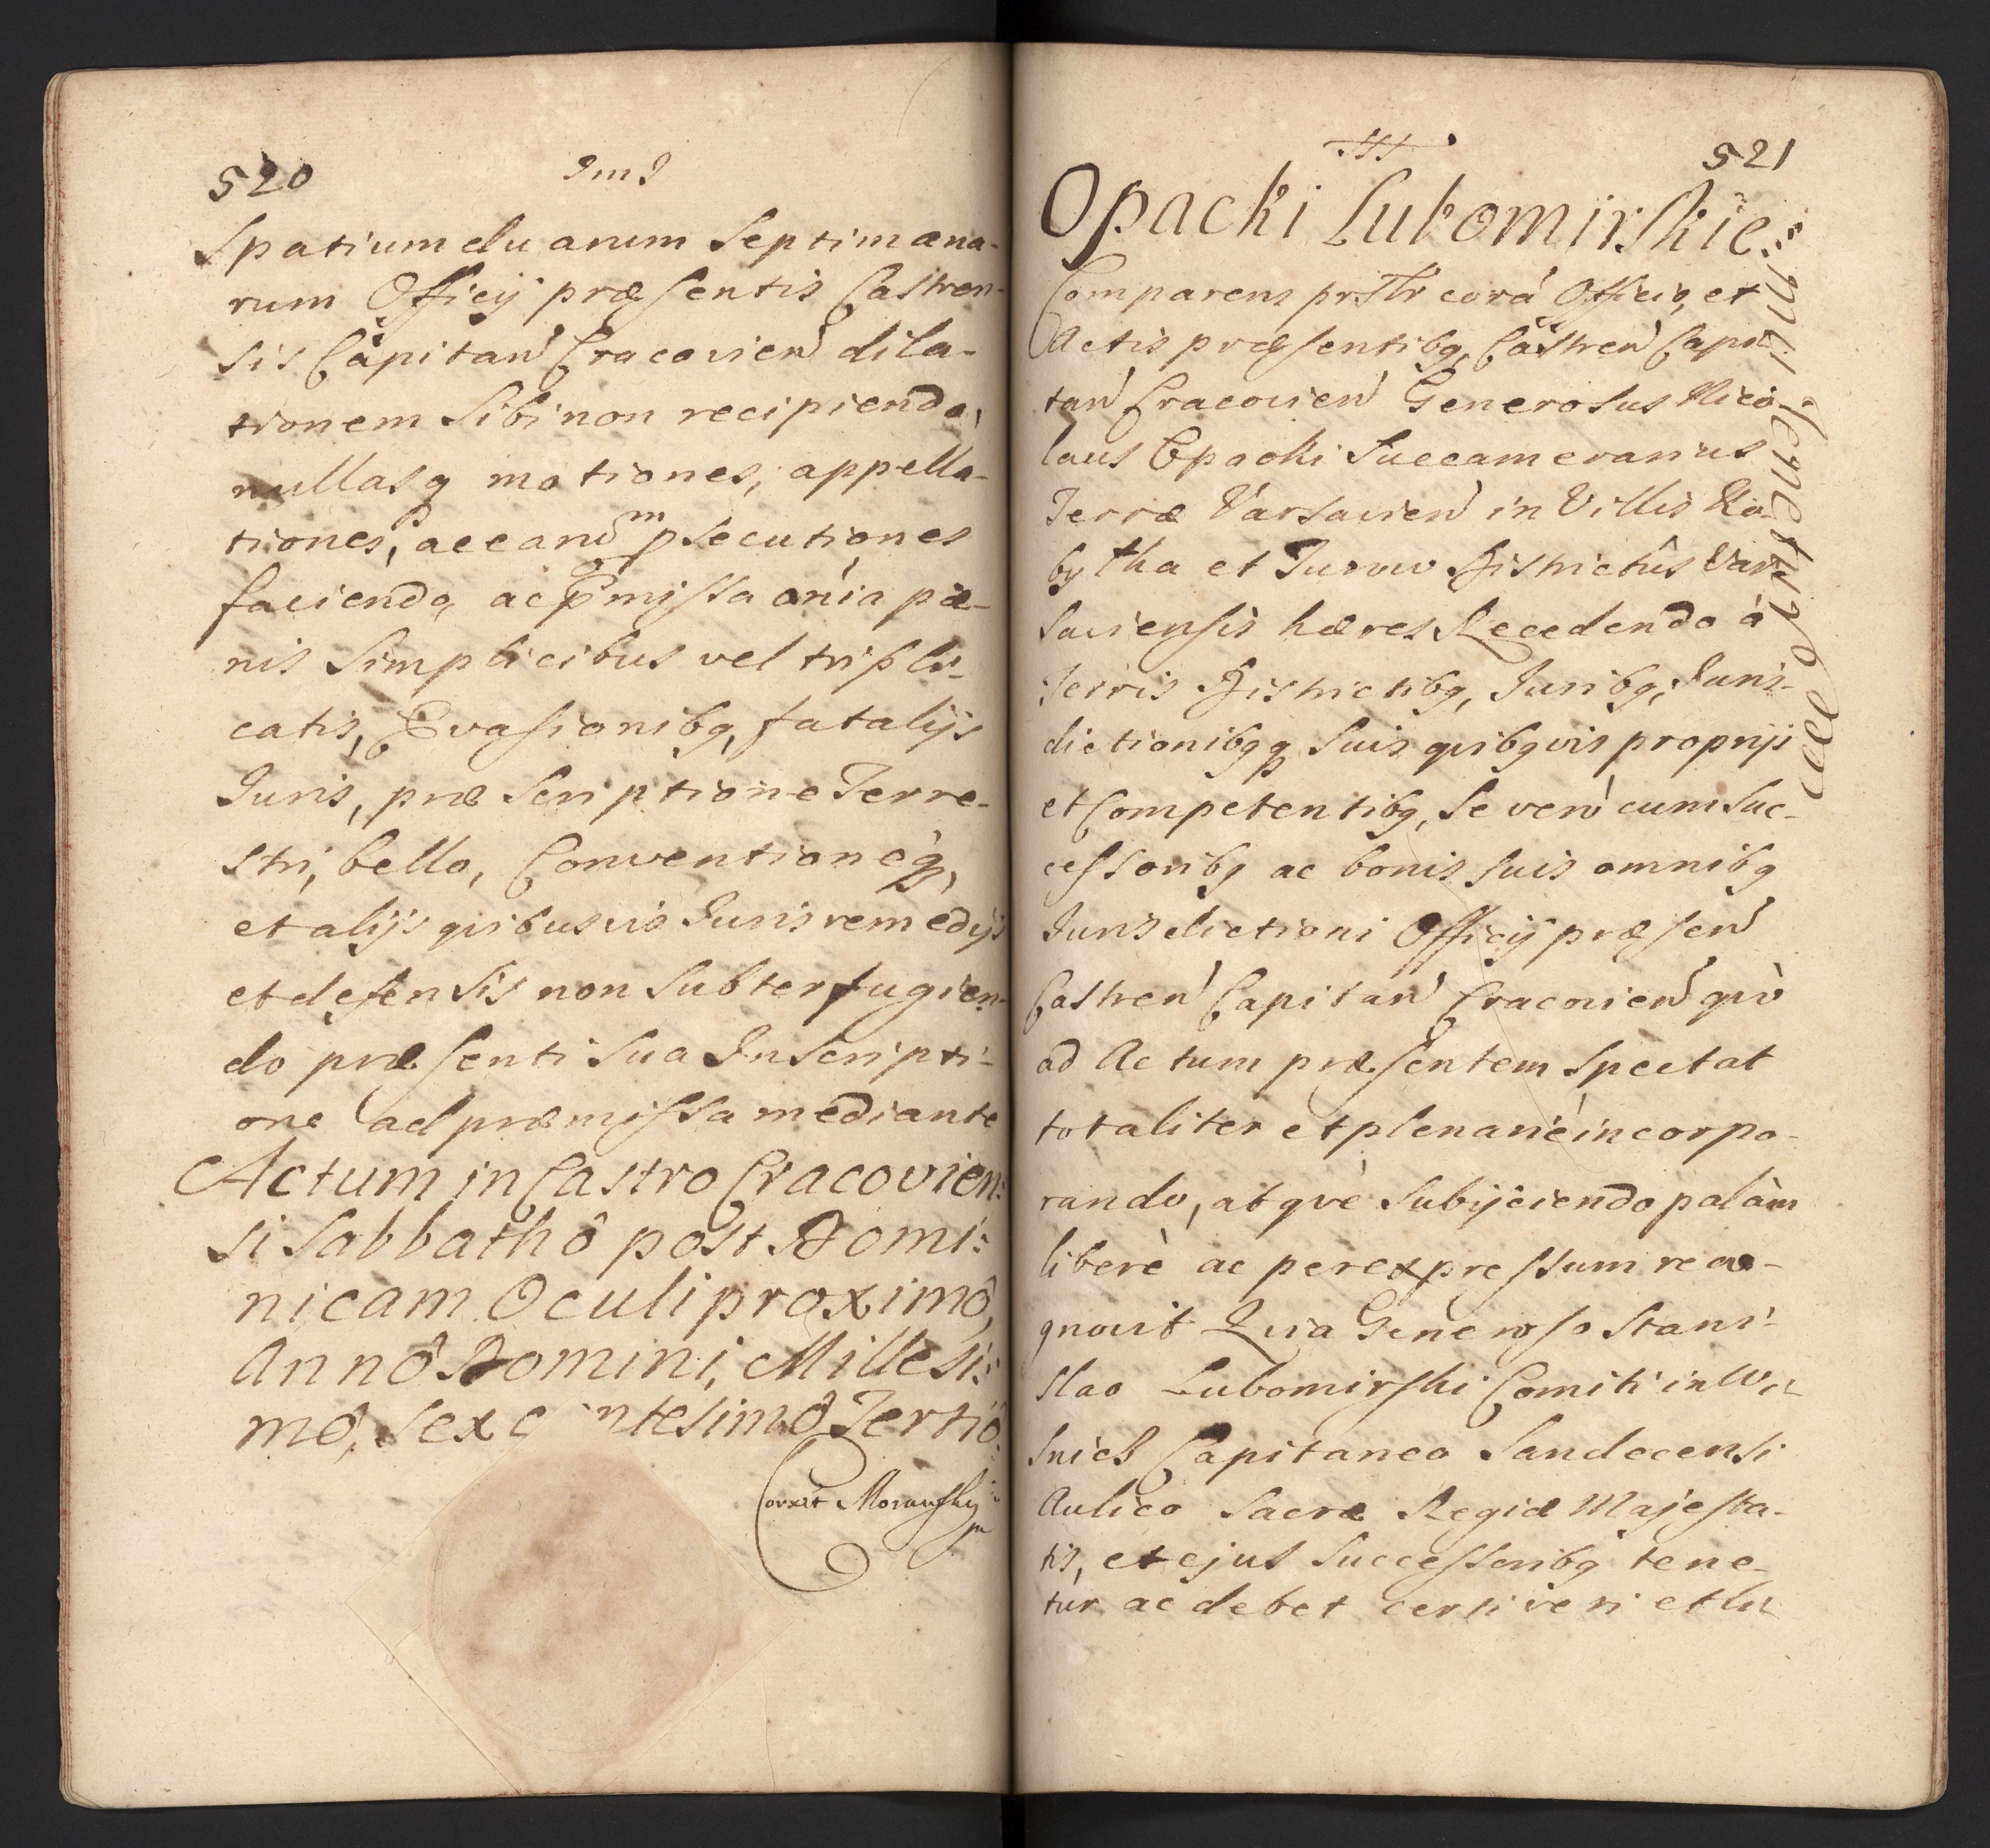 520
Spatium duarum Septimana-
rum Officÿ præsentis Castren-
sis Capitan Cracovien dila-
tionem sibi non recipiendo,
nullasq motiones, appella-
tiones,
faciendo, ac pmissa onia pæ-
nis simplicibus vel tripli-
catis, Evasionibq, fatalijs
Juris, præscriptione Terre-
stri, bello, Conventioneq,
et alijs quibusvis Juris remedÿs
et defensis non subterfugien-
do præsenti sua Inscripti-
one ad præmissa mediante
Actum in Castro Cracovien:
si Sabbathô post Domi:
nicam Oculi proximô,
Annô Domini, Millesi:
mô, Sexcentesimô Tertiô.
521
Opacki Lubomirskie:
Comparens corá Officio, et
Actis præsentibq, Castren Capi
tan Cracovien Generosus Nico
laus Opacki Succamerarius
Terræ Varsavien in Villis
et Districtûs Var
saviensis hæres Recedendo á
Terris Districtibq, Juribq, Juris-
dictionibqq suis quibqvis proprijs
et Competentibq, Se verò cum suc-
cessoribq ac bonis suis omnibq
Jurisdictioni Officÿ præsen
Castren Capitan Cracovien quò
ad Actum præsentem spectat
totaliter et plenariè incorpo-
rando, atqvè subijciendo palàm
liberè ac per expressum reco-
gnovit Quia Generoso Stani-
slao Lubomirski Comiti in Wi
snicz Capitaneo Sandecensi
Aulico Sacræ Regiæ Majesta-
tis, et ejus Successoribq tene-
tur ac debet